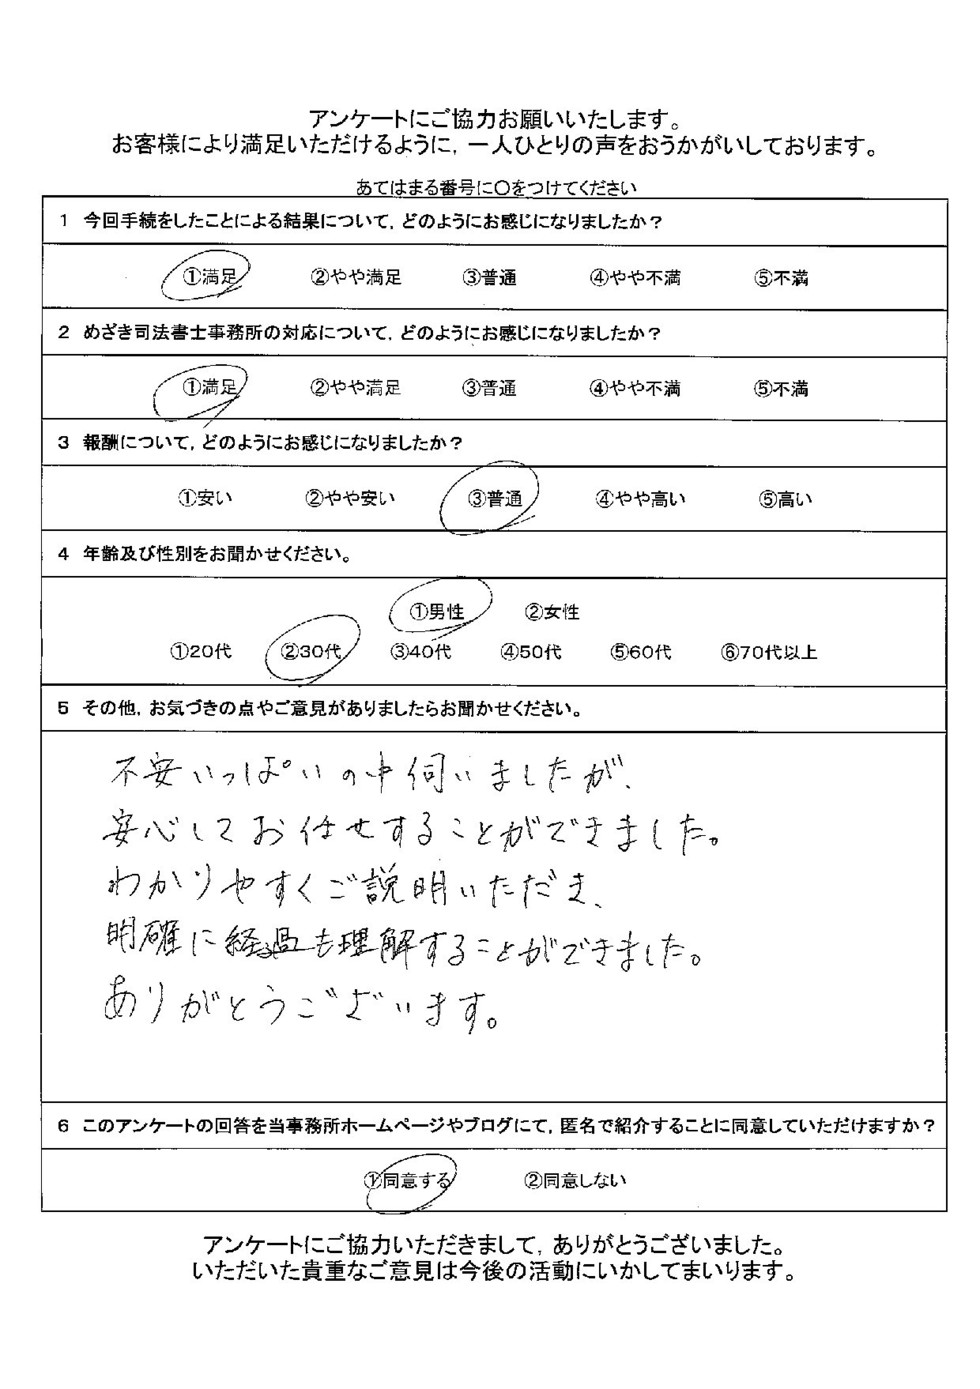 アンケートにご協力お願いいたします。
お客様により満足いただけるように，一人ひとりの声をおうかがいしております。
あてはまる番号に○をつけてください
1 今回手続をしたことによる結果について，どのようにお感じになりましたか？
①満足 ②やや満足 ③普通 ④やや不満 ⑤不満
2 めざき司法書士事務所の対応について，どのようにお感じになりましたか？
①満足 ②やや満足 ③普通 ④やや不満 ⑤不満
3 報酬について，どのようにお感じになりましたか？
①安い ②やや安い ③普通 ④やや高い ⑤高い
4 年齢及び性別をお聞かせください。
①男性 ②女性
①20代 ②30代 ③40代 ④50代 ⑤60代 ⑥70代以上
5 その他，お気づきの点やご意見がありましたらお聞かせください。
不安いっぱいの中伺いましたが、
安心してお任せすることができました。
わかりやすくご説明いただき、
明確に経過も理解することができました。
ありがとうございます。
6 このアンケートの回答を当事務所ホームページやブログにて，匿名で紹介することに同意していただけますか？
①同意する ②同意しない
アンケートにご協力いただきまして，ありがとうございました。
いただいた貴重なご意見は今後の活動にいかしてまいります。